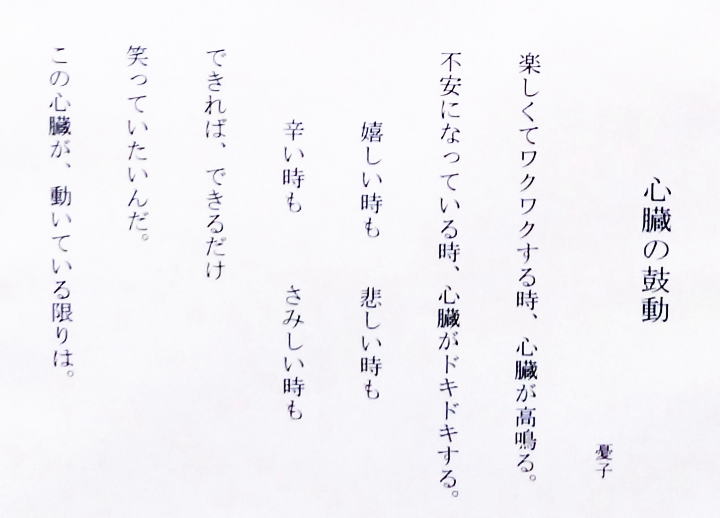 心臓の鼓動
憂子
楽しくてワクワクする時、心臓が高鳴る。
不安になっている時、心臓がドキドキする。
嬉しい時も　悲しい時も
辛い時も　さみしい時も
できれば、できるだけ
笑っていたいんだ。
この心臓が、動いている限りは。